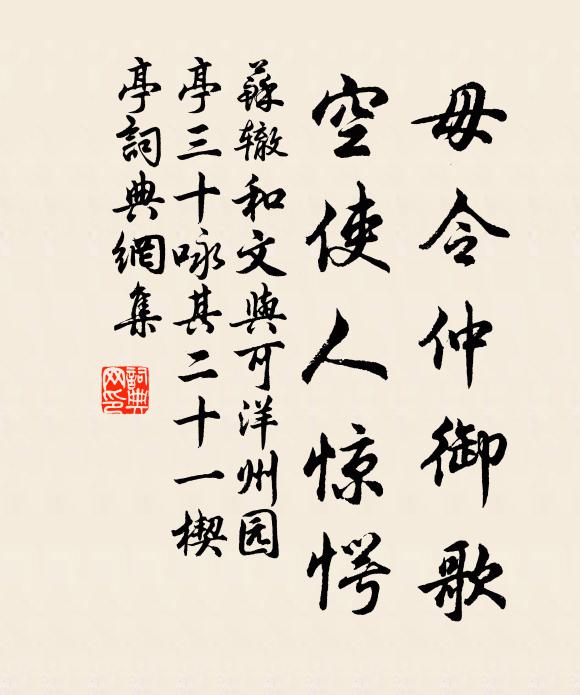 毋令仲御歌
空使人惊愕
蘇辙和文與可洋州园
亭三十咏其二十一楔
亭詞典網集
詞典
网印